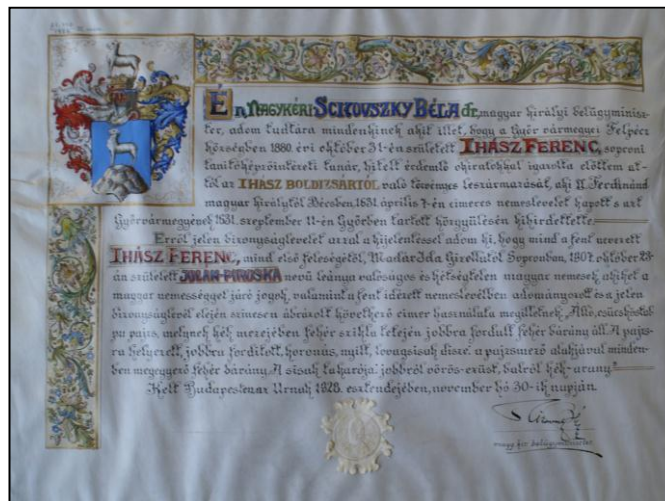 Én, NAGYKÉRI SCITOVSZKY BÉLA dr., magyar királyi belügyminisz-
ter, adom tudtára mindenkinek akit illet, hogy a Győr vármegyei Felpéc
községben 1880. évi október 31-én született IHÁSZ FERENC, soproni
tanítóképzőintézeti tanár, hitelt érdemlő okiratokkal igazolta előttem at-
tól az IHÁSZ BOLDIZSÁRTÓL való törvényes leszármazását, aki II. Ferdinánd
magyar királytól Bécsben, 1631. április 7-én címeres nemeslevelet kapott s azt
Győrvármegyének 1631. szeptember 11-én Győrben tartott közgyülésén kihirdettette.
Erről jelen bizonyságlevelet azzal a kijelentéssel adom ki, hogy mind a fent nevezett
IHÁSZ FERENC, mind első feleségétől, Madár Ida Gizellától Sopronban, 1907. október 23-
án született JOLÁN-PIROSKA nevű leánya valóságos és kétségtelen magyar nemesek, akiket a
magyar nemességgel járó jogok, valamint a fent idézett nemeslevélben adományozott és a jelen
bizonyságlevél elején színesen ábrázolt következő címer használata megilletnek: „Álló, csücsköstal-
pu pajzs, melynek kék mezejében fehér szikla tetején jobbra fordult fehér bárány áll. A pajzs-
ra helyezett, jobbra fordított, koronás, nyílt, lovagsisak dísze: a pajzsmező alakjával minden-
ben megegyező fehér bárány. A sisak takarója: jobbról vörös-ezüst, balról kék-arany."
Kelt Budapesten az Urnak 1928. esztendejében, november hó 30-ik napján.
magy. kir. belügyminiszter